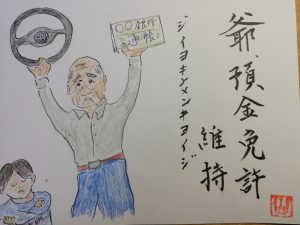 爺預金免許
維持
ジイヨキンメンキヨイジ
〇〇銀行
通帳